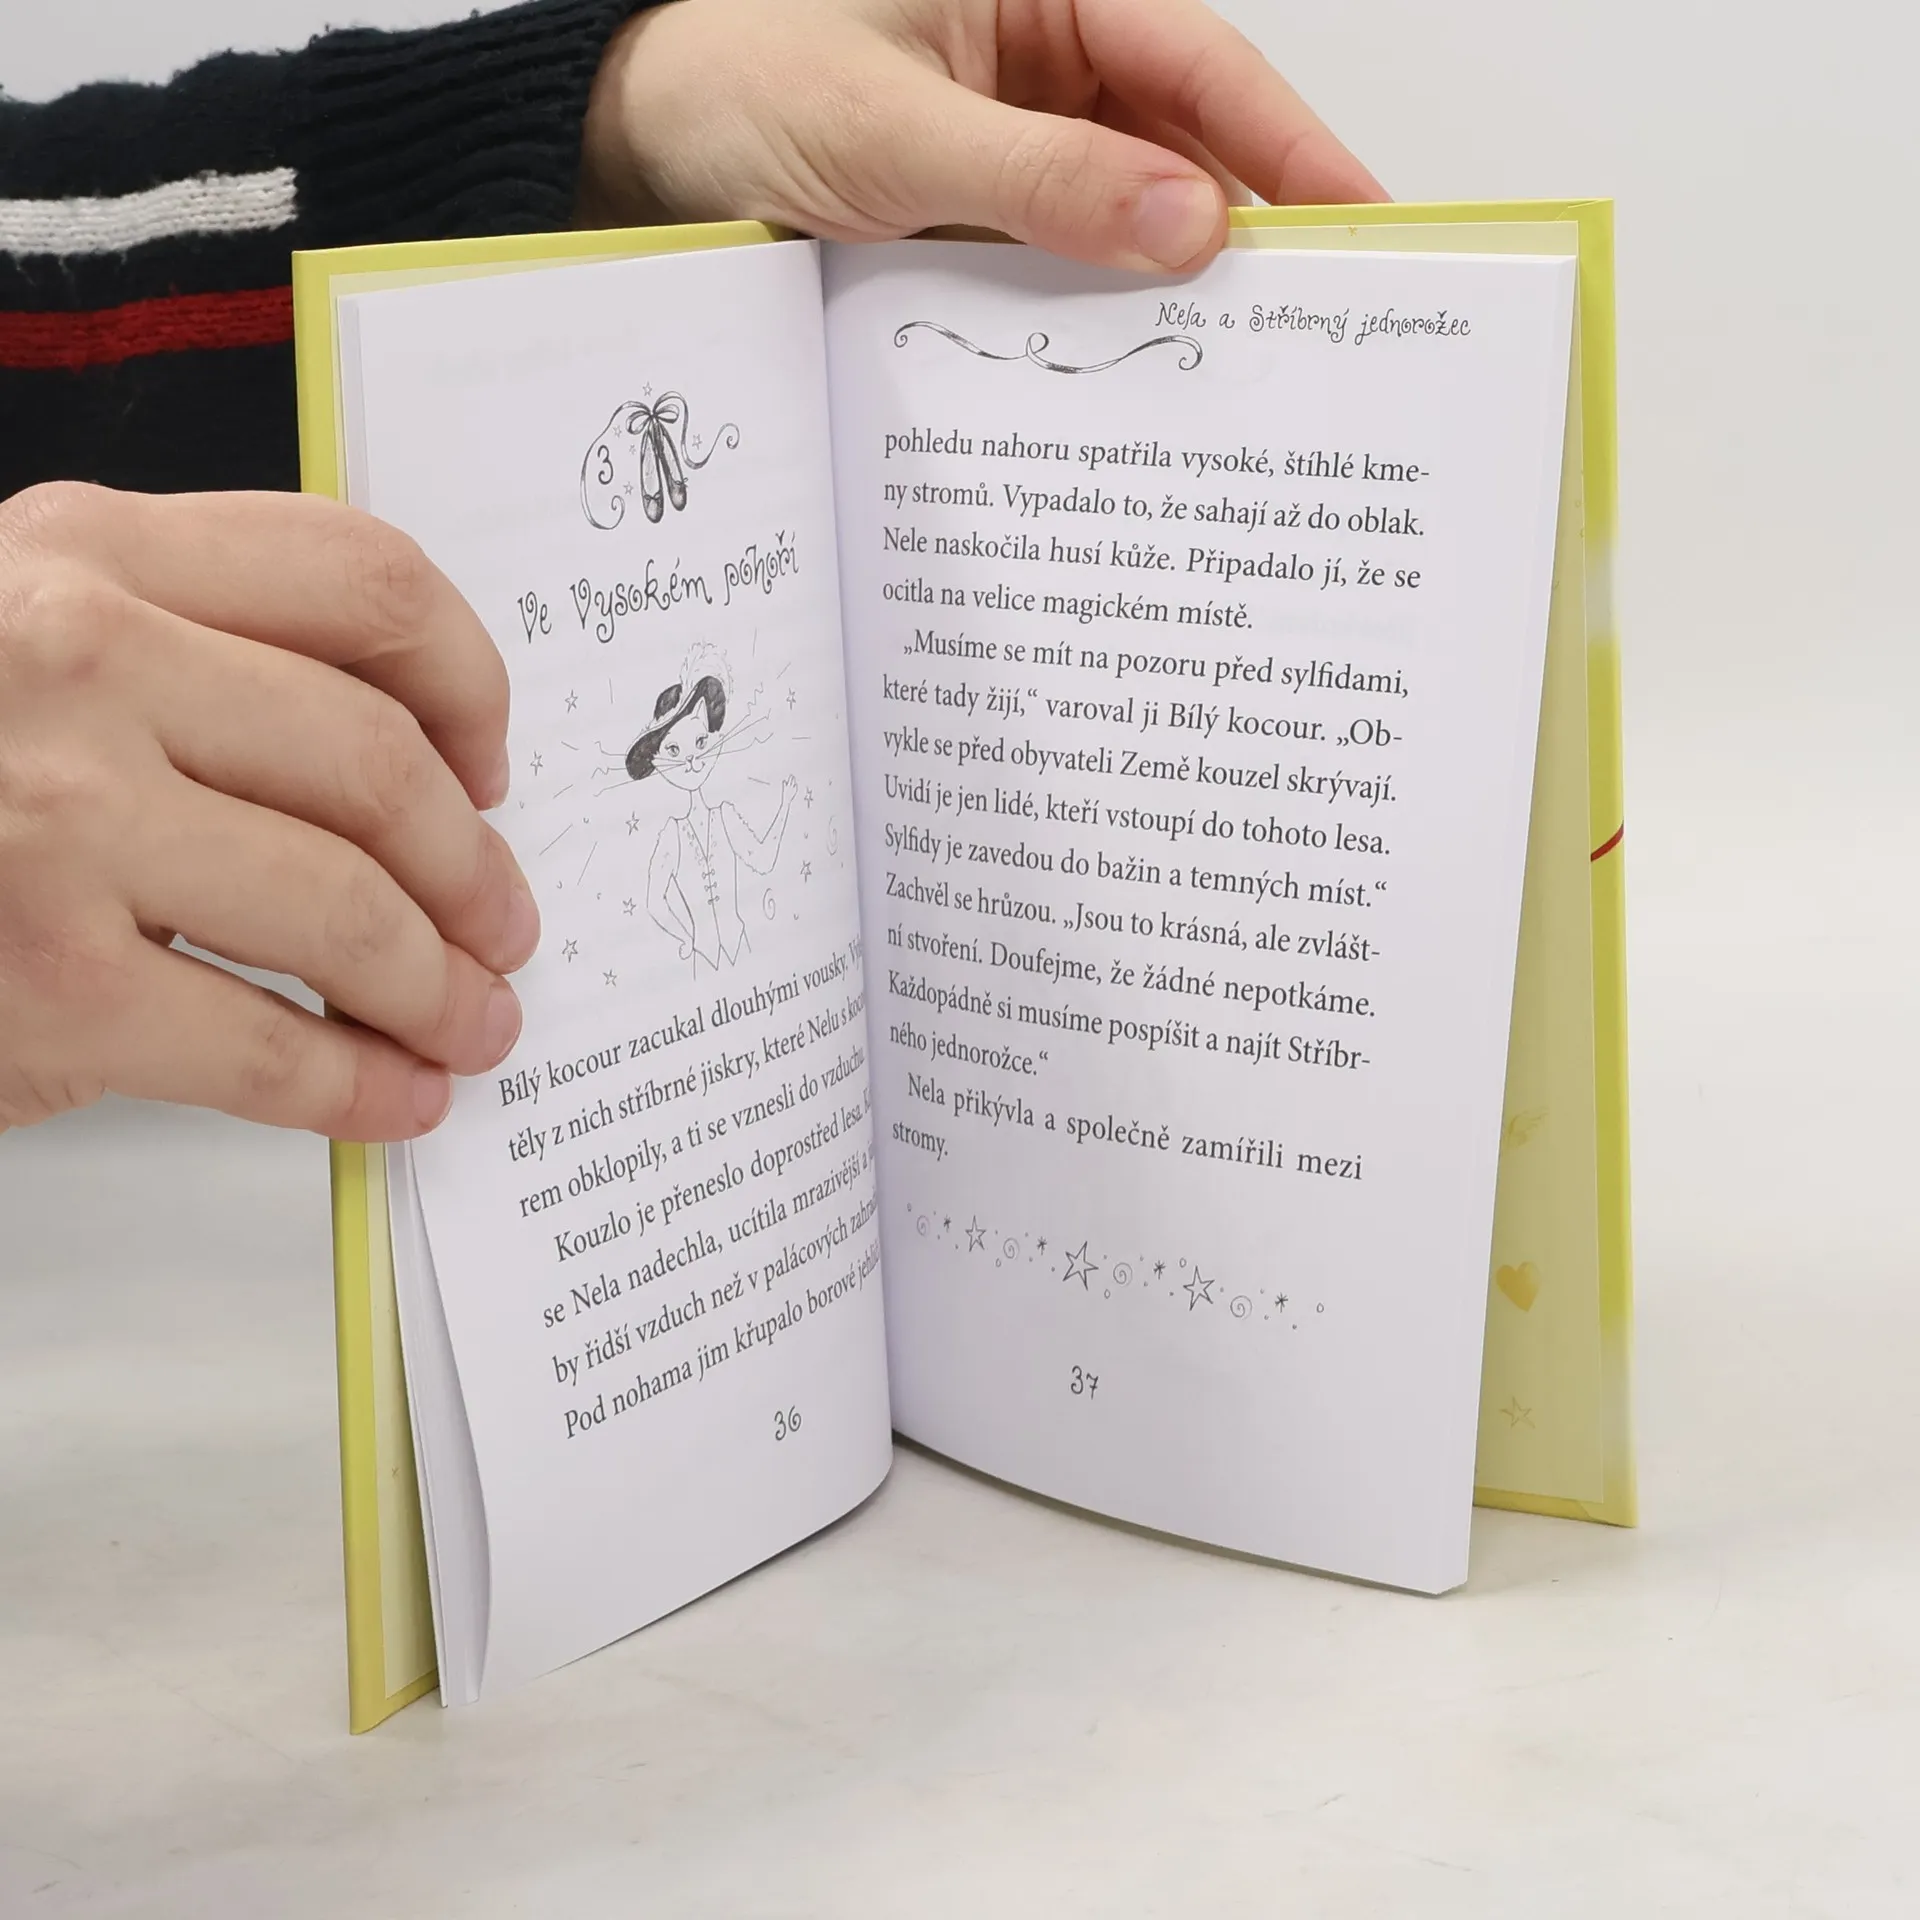 3
Ve Vysokém pohoří
Bílý kocour zacukal dlouhými vousky.
těly z nich stříbrné jiskry, které Nelu s
rem obklopily, a ti se vznesli do vzduchu.
Kouzlo je přeneslo doprostřed lesa.
se Nela nadechla, ucítila mrazivější a
by řidší vzduch než v palácových
Pod nohama jim křupalo borové
36
Nela a Stříbrný jednorožec
pohledu nahoru spatřila vysoké, štíhlé kme-
ny stromů. Vypadalo to, že sahají až do oblak.
Nele naskočila husí kůže. Připadalo jí, že se
ocitla na velice magickém místě.
„Musíme se mít na pozoru před sylfidami,
které tady žijí,“ varoval ji Bílý kocour. „Ob-
vykle se před obyvateli Země kouzel skrývají.
Uvidí je jen lidé, kteří vstoupí do tohoto lesa.
Sylfidy je zavedou do bažin a temných míst.“
Zachvěl se hrůzou. „Jsou to krásná, ale zvlášt-
ní stvoření. Doufejme, že žádné nepotkáme.
Každopádně si musíme pospíšit a najít Stříbr-
ného jednorožce.“
Nela přikývla a společně zamířili mezi
stromy.
37